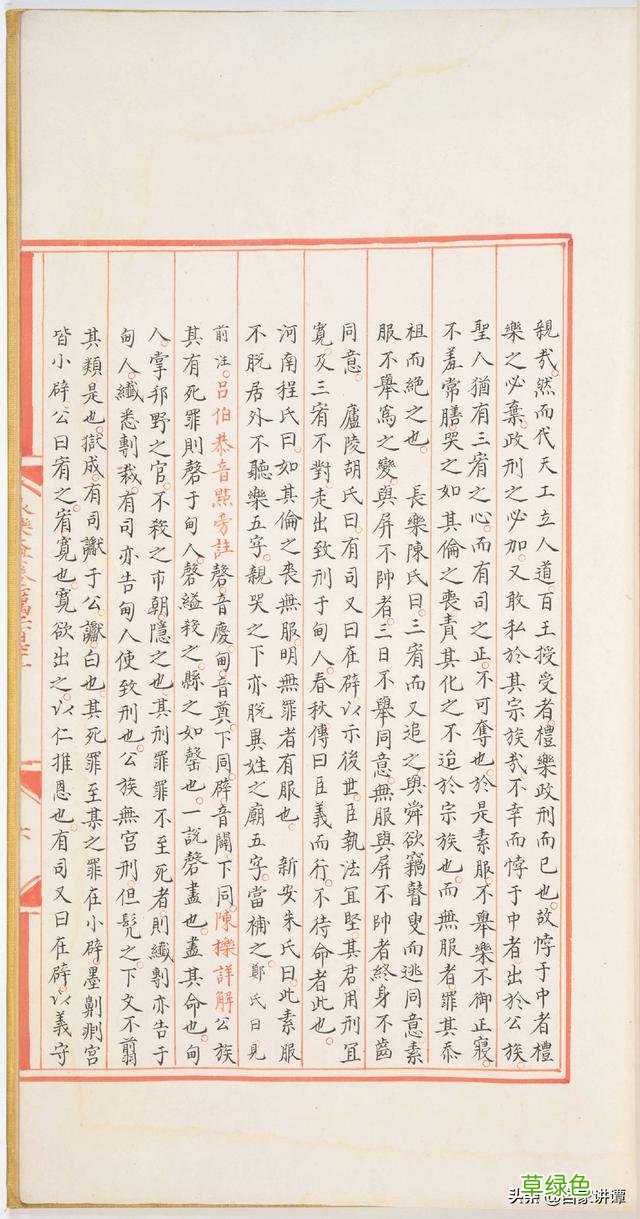 親哉。然而代天工立人道百王授受者。禮樂政刑而已也。故悖于中者禮
樂之必棄。政刑之必加。又敢私於其宗族哉。不幸而悖于中者。出於公族。
聖人猶有三宥之心。而有司之正。不可奪也。於是素服不舉樂不御正寢。
不羞常膳。哭之如其倫之喪。責其化之不迨於宗族也。而無服者。罪其忝
祖而絕之也。 長樂陳氏曰。三宥而又追之。與舜欲竊瞽叟而逃同意。素
服不舉為之變。與屏不帥者。三日不舉同意。無服與屏不帥者終身不齒
同意。 廬陵胡氏曰。有司又曰在辟。以示後世。臣執法宜堅。其君用刑宜
寬。及三宥不對。走出致刑于甸人。春秋傳曰。臣義而行。不待命者此也。
河南程氏曰。如其倫之喪無服。明無罪者有服也。 新安朱氏曰。此素服
不脫居外不聽樂五字。親哭之下。亦脫異姓之廟五字。當補之。鄭氏曰見
前注。呂伯恭音點旁註。磬。音慶。甸。音奠。下同。辟。音闢。下同。陳櫟詳解。公族
其有死罪則磬于甸人。磬縊殺之。縣之如罄也。一說磬盡也。盡其命也。甸
人。掌郊野之官。不殺之市朝。隱之也。其刑罪。罪不至死者。則纖剸亦告于
甸人。纖悉剸裁。有司亦告甸人使致刑也。公族無宮刑。但髡之。下文不翦
其類是也。獄成。有司讞于公。讞。白也。其死罪至某之罪在小辟。墨劓剕宮
皆小辟。公曰宥之。宥寬也。寬欲出之。以仁推恩也。有司又曰在辟。以義守
頭條 @白家讲谭
草绿色